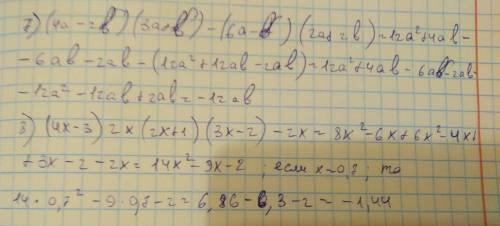 7) (4a - 2b) (3a+b) - (6a-b) (2a+2b) = 12a² + 4ab -
- 6ab - 2ab - (12a² + 12ab - 2ab) = 12a² + 4ab - 6ab - 2ab -
- 12a² - 12ab + 2ab = - 12ab
8) (4x-3) 2x (2x+1) (3x-2) - 2x = 8x² - 6x + 6x² - 4x +
+ 3x - 2 - 2x = 14x² - 9x - 2 ; если x = 0,7 ; то
14 · 0,7² - 9 · 0,7 - 2 = 6,86 - 6,3 - 2 = - 1,44